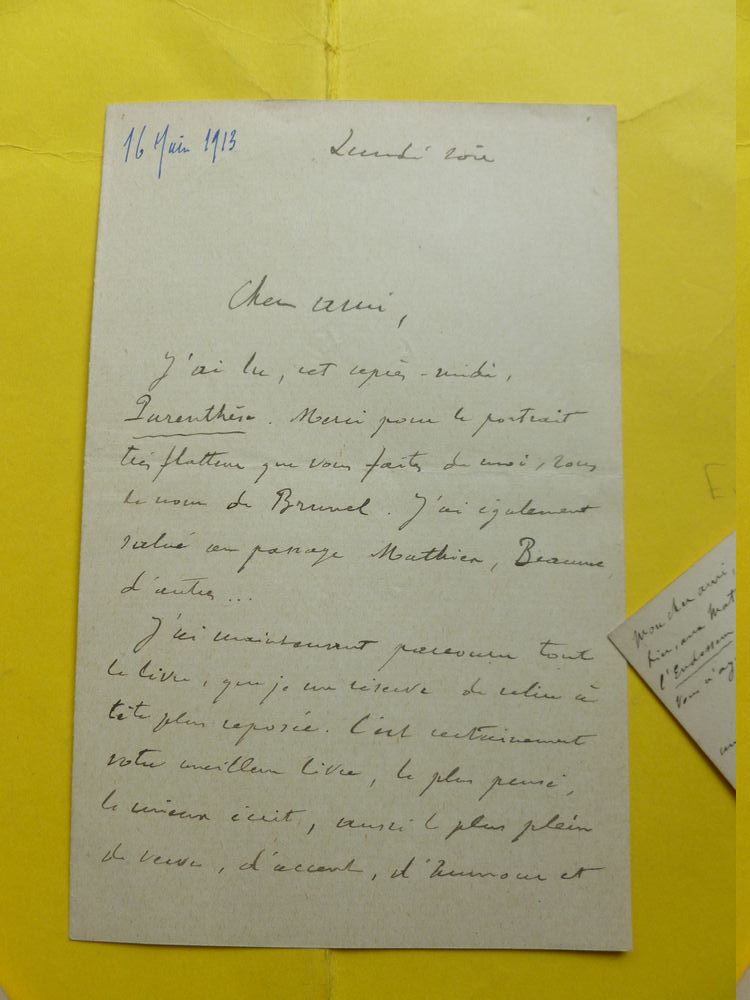 16 Juin 1913
Lundi soir
Cher ami,
J'ai lu, cet après-midi,
Parenthèse. Merci pour le portrait
très flatteur que vous faites de moi, sous
le nom de Brunel. J'ai également
salué au passage Mathieu, Beaume
d'autres...
J'ai maintenant parcouru tout
le livre, que je me réserve de relire à
tête plus reposée. C'est certainement
votre meilleur livre, le plus pensé,
le mieux écrit, aussi le plus plein
de verve, d'accent, d'humour et
Mon cher ami,
l'Endosseur